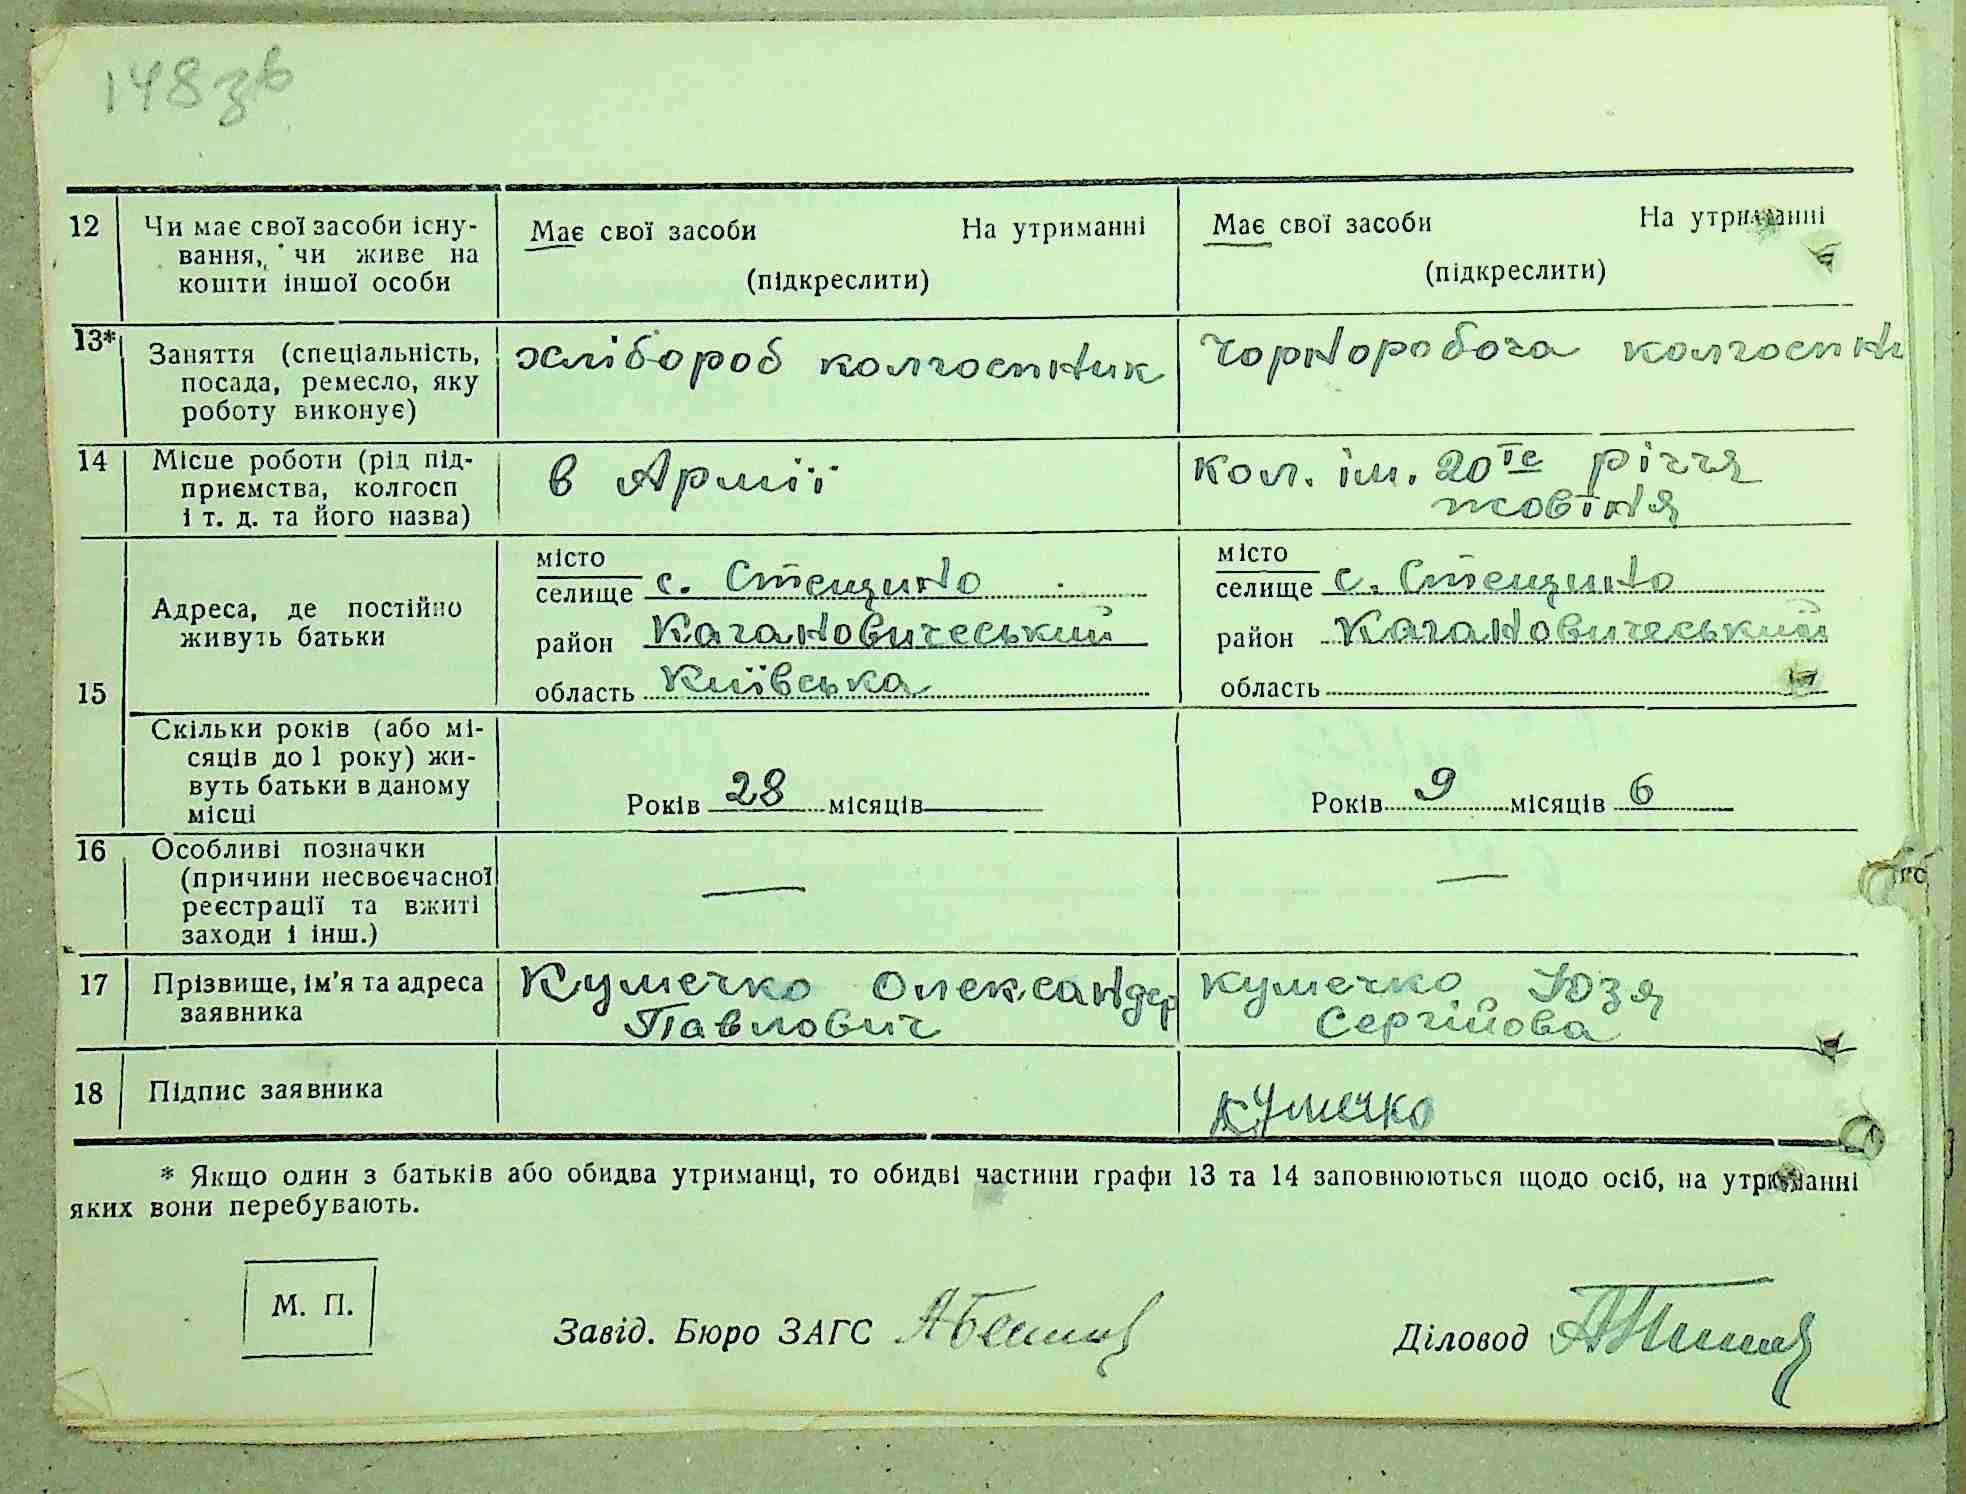 148 зв
12 Чи має свої засоби існу- Має свої засоби На утриманні Має свої засоби На утриманні
вання, чи живе на
кошти іншої особи (підкреслити) (підкреслити)
13* Заняття (спеціальність, хлібороб колгоспник Чорноробоча колгоспн
посада, ремесло, яку
роботу виконує)
14 Місце роботи (рід під- в Армії кол. ім. 20те річчя
приємства, колгосп жовтня
і т. д. та його назва)
місто місто
селище с. Стещино селище с. Стещино
Адреса, де постійно
живуть батьки район Кагановичеський район Кагановичеський
15 область Київська область
Скільки років (або мі-
сяців до 1 року) жи-
вуть батьки в даному Років 28 місяців Років 9 місяців 6
місці
16 Особливі позначки
(причини несвоєчасної — —
реєстрації та вжиті
заходи і інш.)
17 Прізвище, ім'я та адреса Кумечко Олександер кумечко Юзя
заявника Павлович Сергійова
18 Підпис заявника кумечко
* Якщо один з батьків або обидва утриманці, то обидві частини графи 13 та 14 заповнюються щодо осіб, на утриманні
яких вони перебувають.
М. П.
Завід. Бюро ЗАГС Діловод